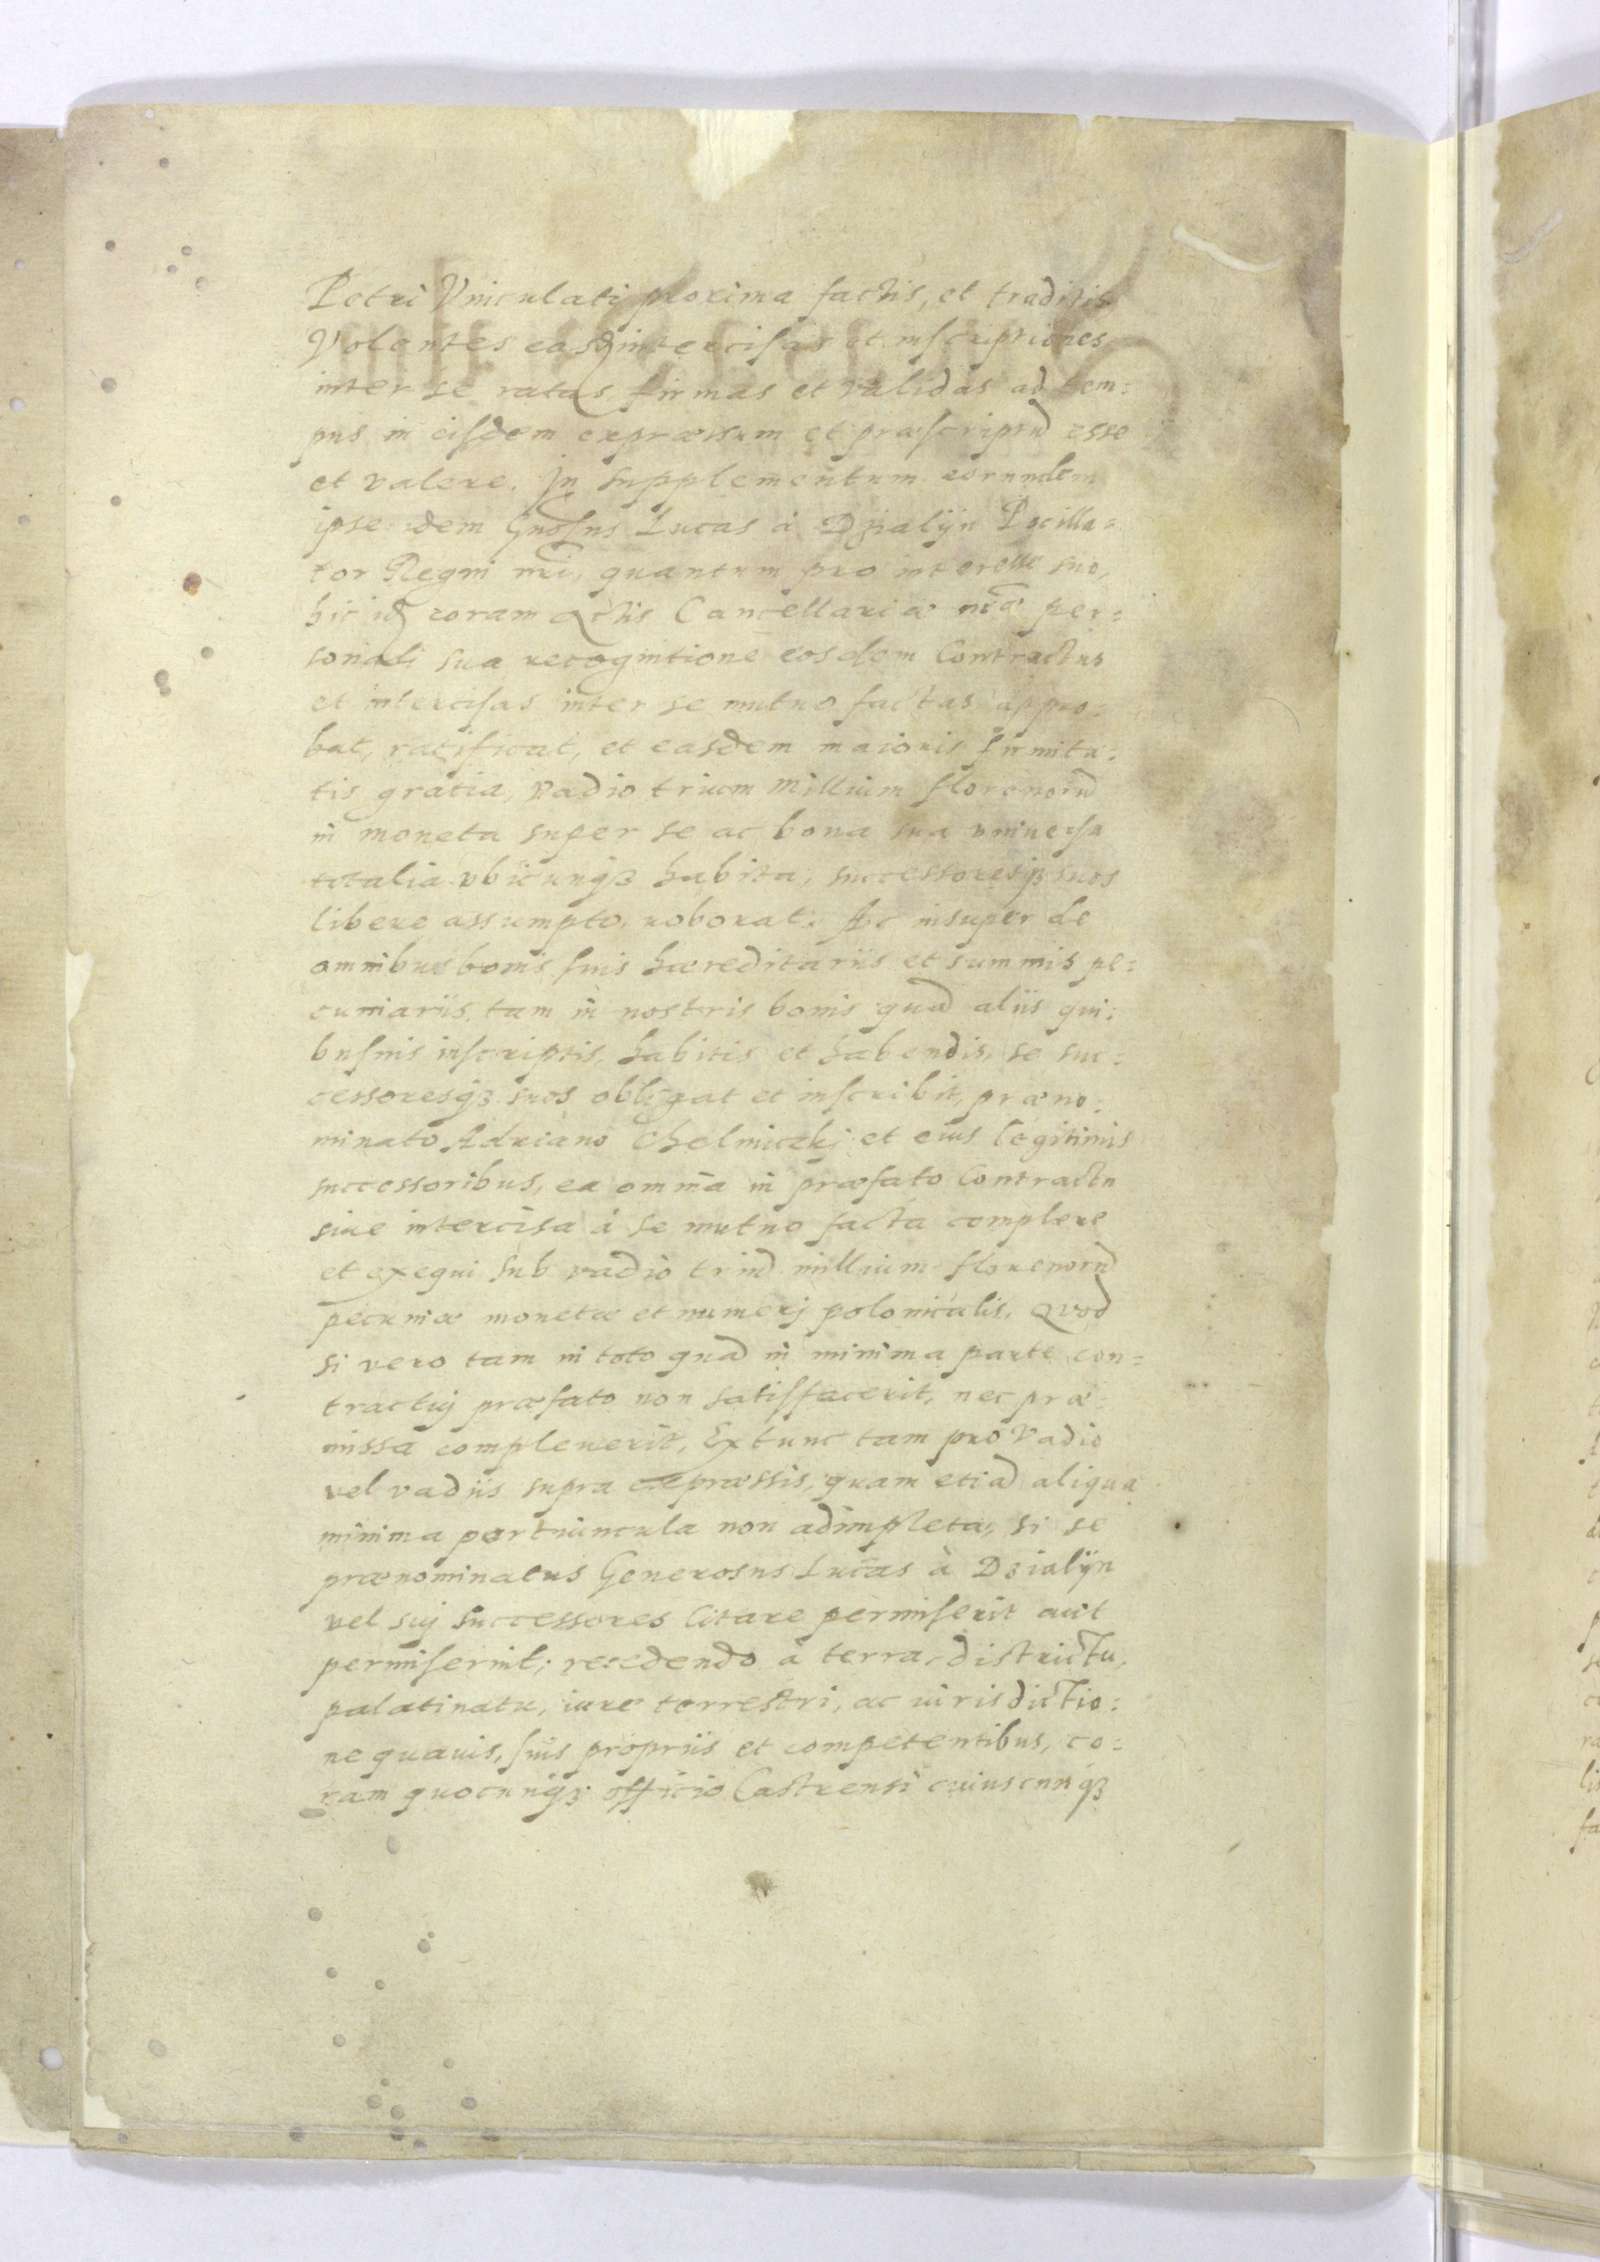 Petri Vniculati proxima factis, et traditis
Volentes easq intercisas et inscriptiones
inter se ratas firmas et validas ad tem:
pus in eisdem expræssum et præscriptũ esse
et valere. In supplementum eorundem
ipse idem Gnosus Lucas à Dzialÿn Pocilla=
tor Regni nri, quantum pro interesse suo,
hic idq coram Actis Cancellariæ nræ per=
sonali sua recognitione eosdem Contractus
et intercisas inter se mutuo factas appro:
bat, ratificat, et easdem maioris firmita:
tis gratia, Vadio trium Millium florenorũ
in moneta super se ac bona sua vniuersa
totalia vbicunqȝ habita, successoresqȝ suos
libere assumpto, roborat. Ac insuper de
omnibus bonis suis hæreditariis et summis pe:
cuniariis tam in nostris bonis quã aliis qui:
busuis inscriptis, habitis et habendis, se suc:
cessoresqȝ suos obligat et inscribit, præno:
minato Adriano Chelmiczkj et eius legitimis
successoribus, ea omnia in præfato Contractu
siue intercisa à se mutuo facta complere
et exequi sub vadio triũ millium florenorũ
pecuniæ monetæ et numerj polonicalis. Quod
si vero tam in toto quã in minima parte con=
tractuj præfato non satisffacerit, nec præ
missa compleuerit, Extunc tam pro Vadio
vel vadiis supra expræssis, quam etiã aliqua
minima portiuncula non adimpleta, si se
prænominatus Generosus Lucas à Dzialÿn
vel suj successores citare permiserit aut
permiserint; recedendo à terra, districtu,
palatinatu, iure terrestri, ac iurisdictio:
ne quauis, suis propriis et competentibus, co:
ram quocunqȝ officio Castrensi cuiuscunqȝ